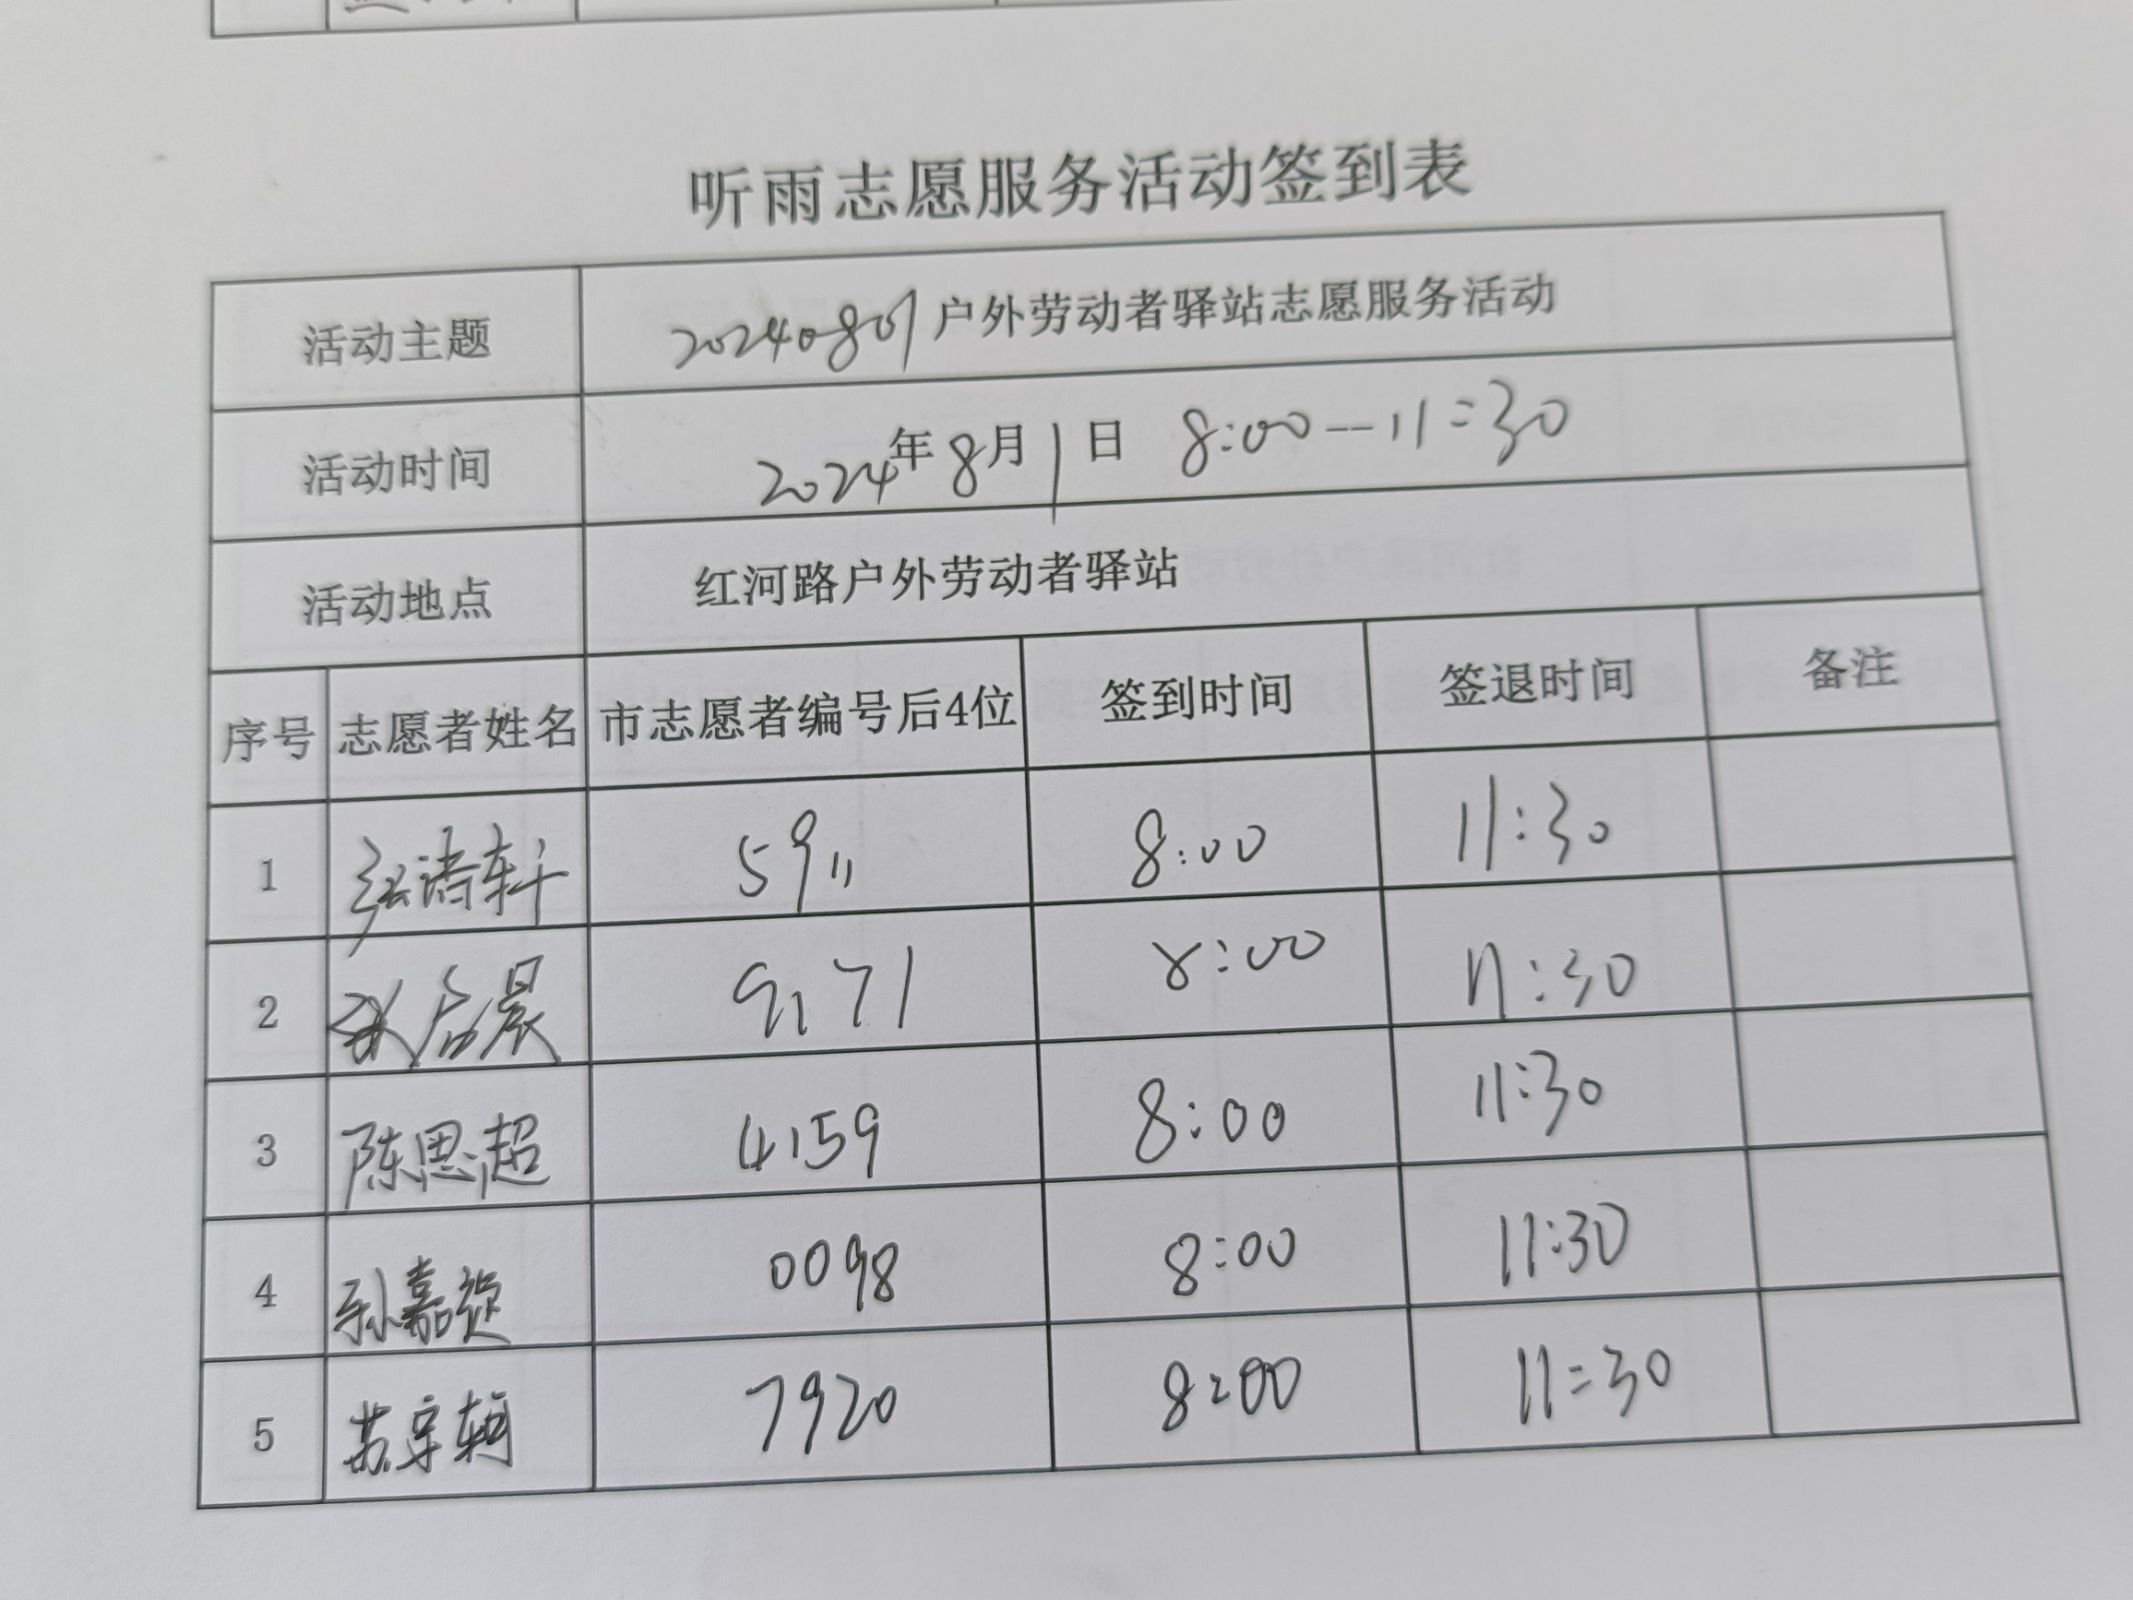 听雨志愿服务活动签到表
活动主题 20240801户外劳动者驿站志愿服务活动
活动时间 2024年8月1日 8:00--11:30
活动地点 红河路户外劳动者驿站
序号 志愿者姓名 市志愿者编号后4位 签到时间 签退时间 备注
1 张诗轩 5911 8:00 11:30
2 启晨 9171 8:00 11:30
3 陈思超 4159 8:00 11:30
4 孙嘉旋 0098 8:00 11:30
5 苏宇轲 7920 8:00 11:30